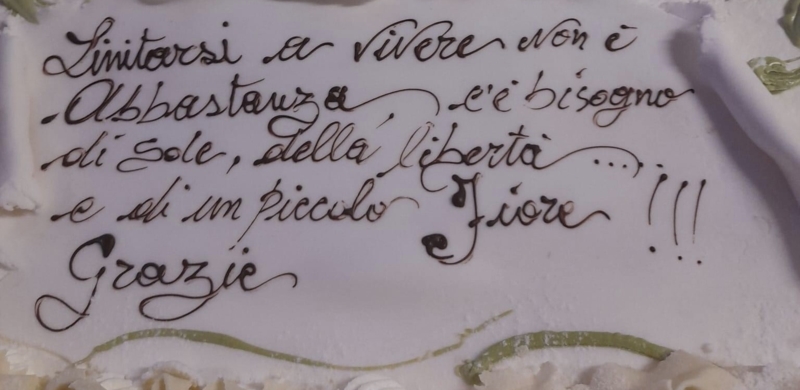 Linitarsi a vivere non è
Abbastanza, c'è bisogno
di sole, della libertà .....
e di un piccolo Fiore !!!
Grazie